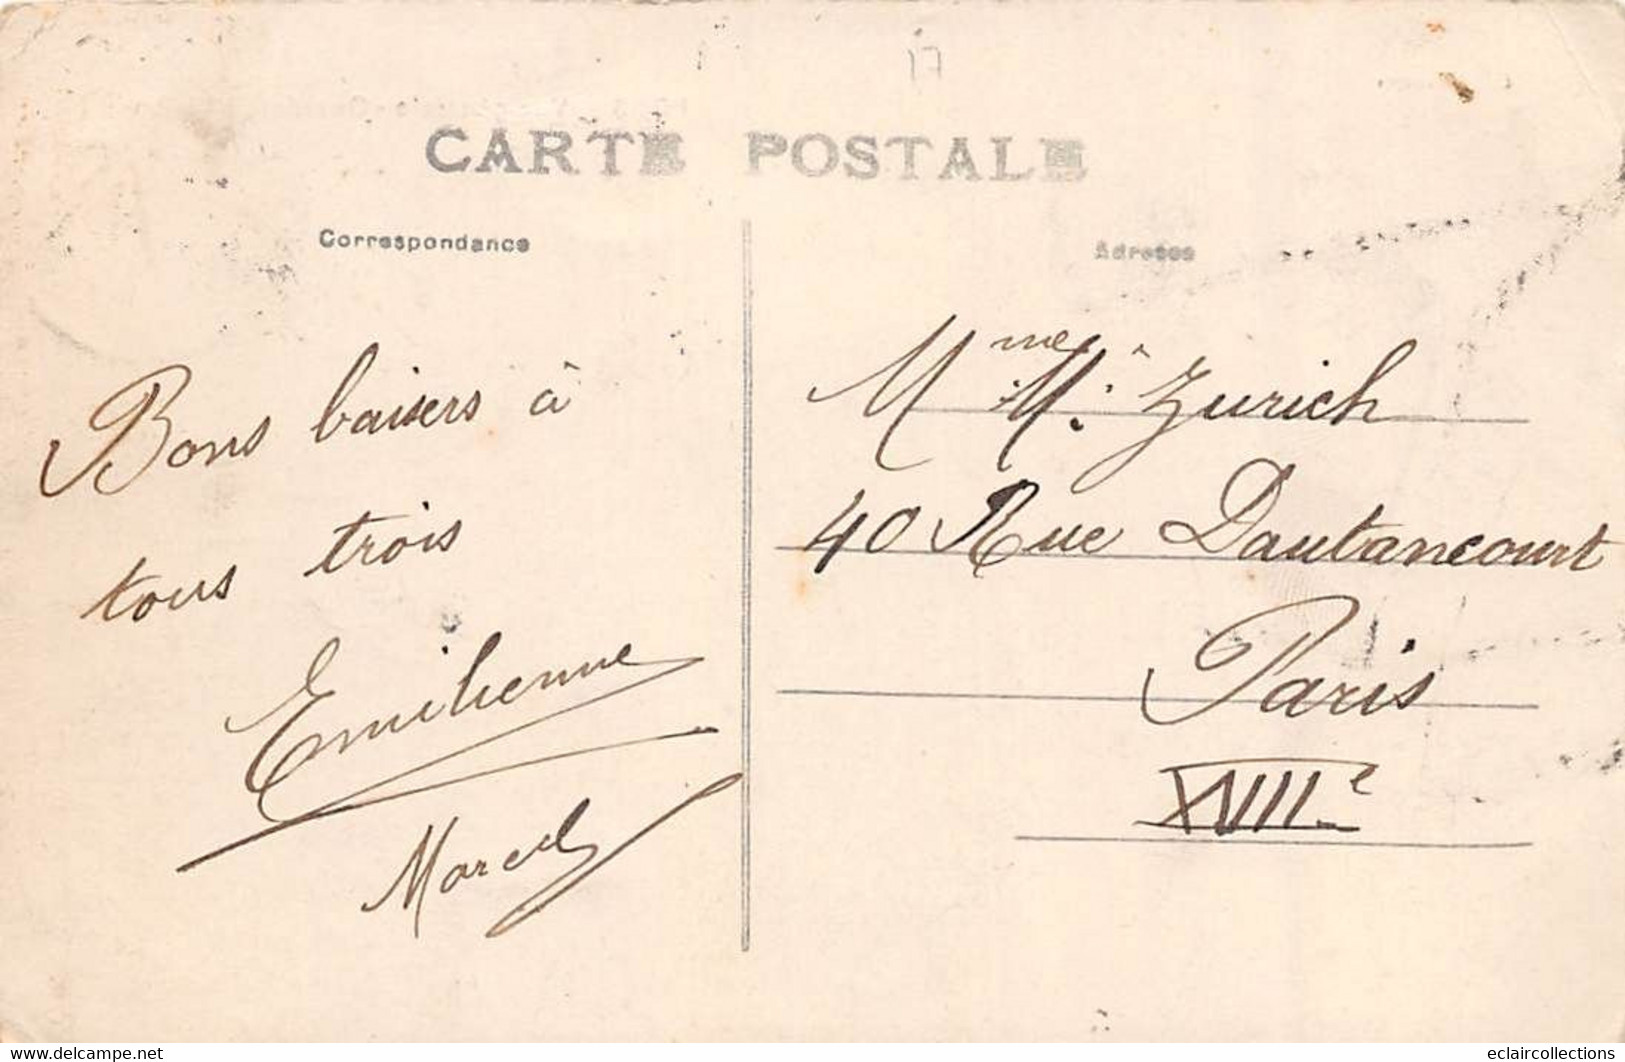 17
CARTE POSTALE
Correspondance
Adresse
Bons baisers à
tous trois
Emilienne
Marcel
Mme M. Zurich
40 Rue Dautancourt
Paris
XVIIe
delcampe.net
eclaircollections